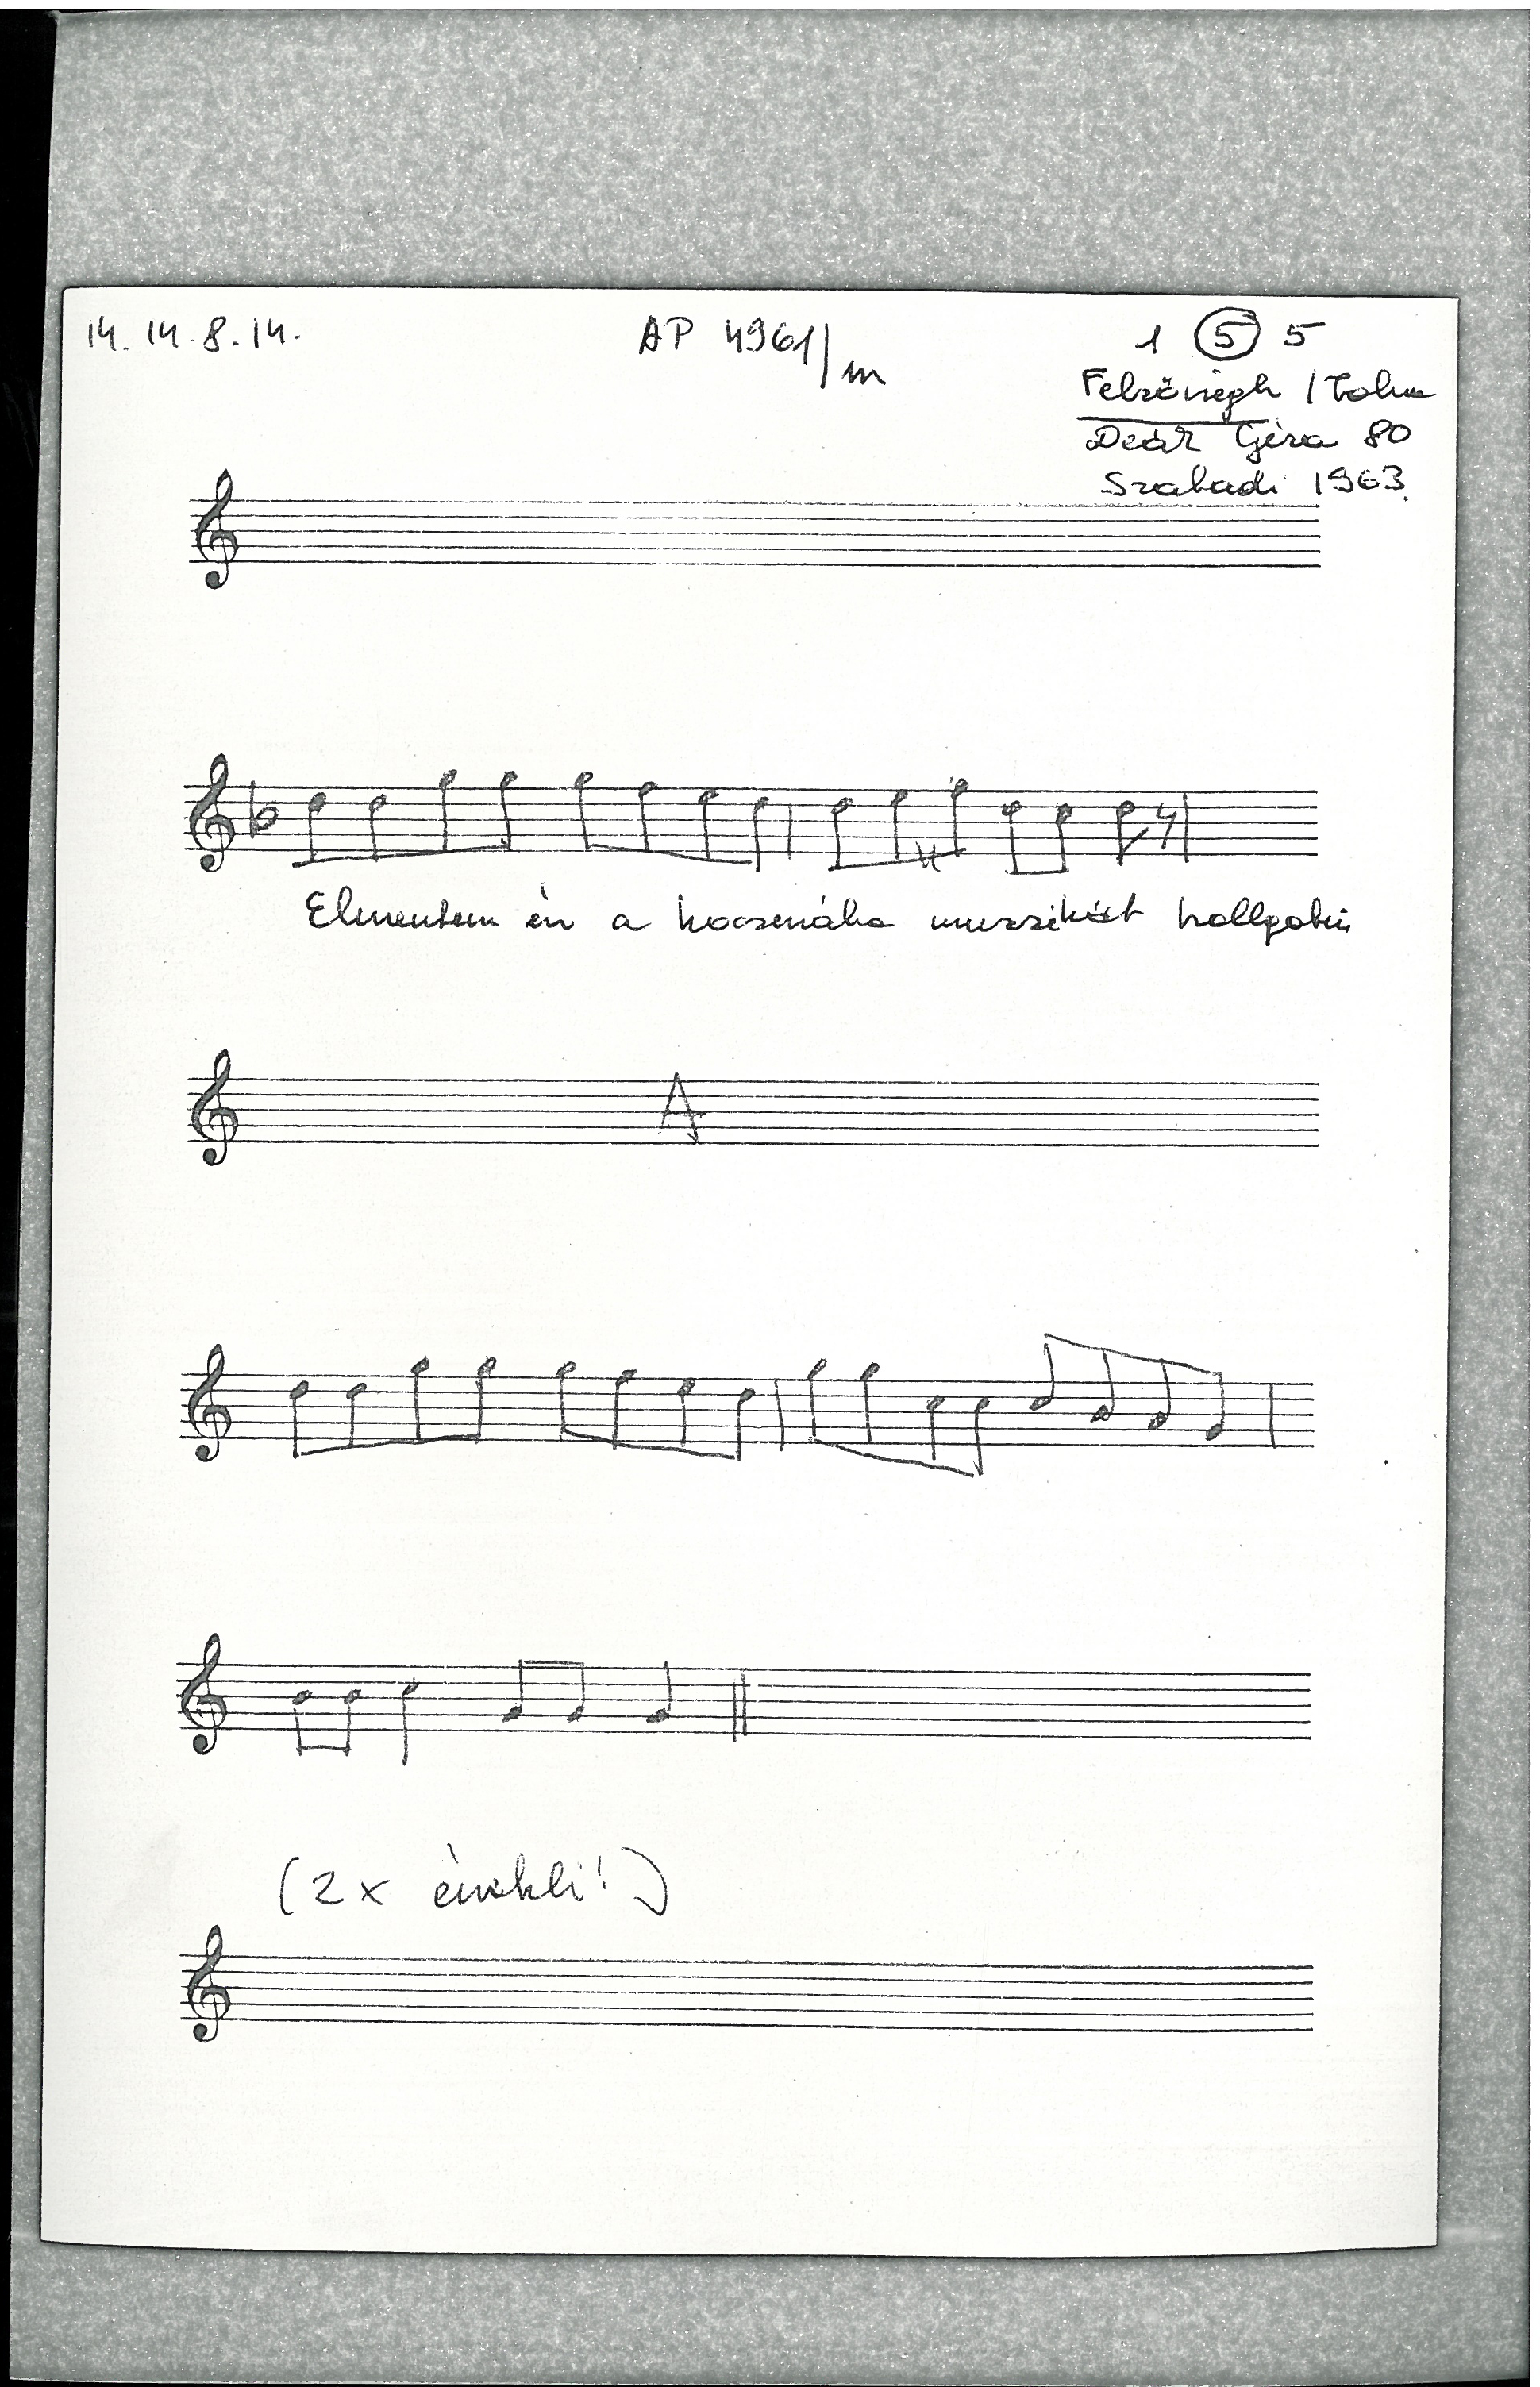 14. 14. 8. 14.
AP 4961/m
1 5 5
Felsőnyék / Tolna
Deák Géza 80
Szabadi 1963.
Elmentem én a kocsmába muzsikát hallgatni
A
(2x énekli!)